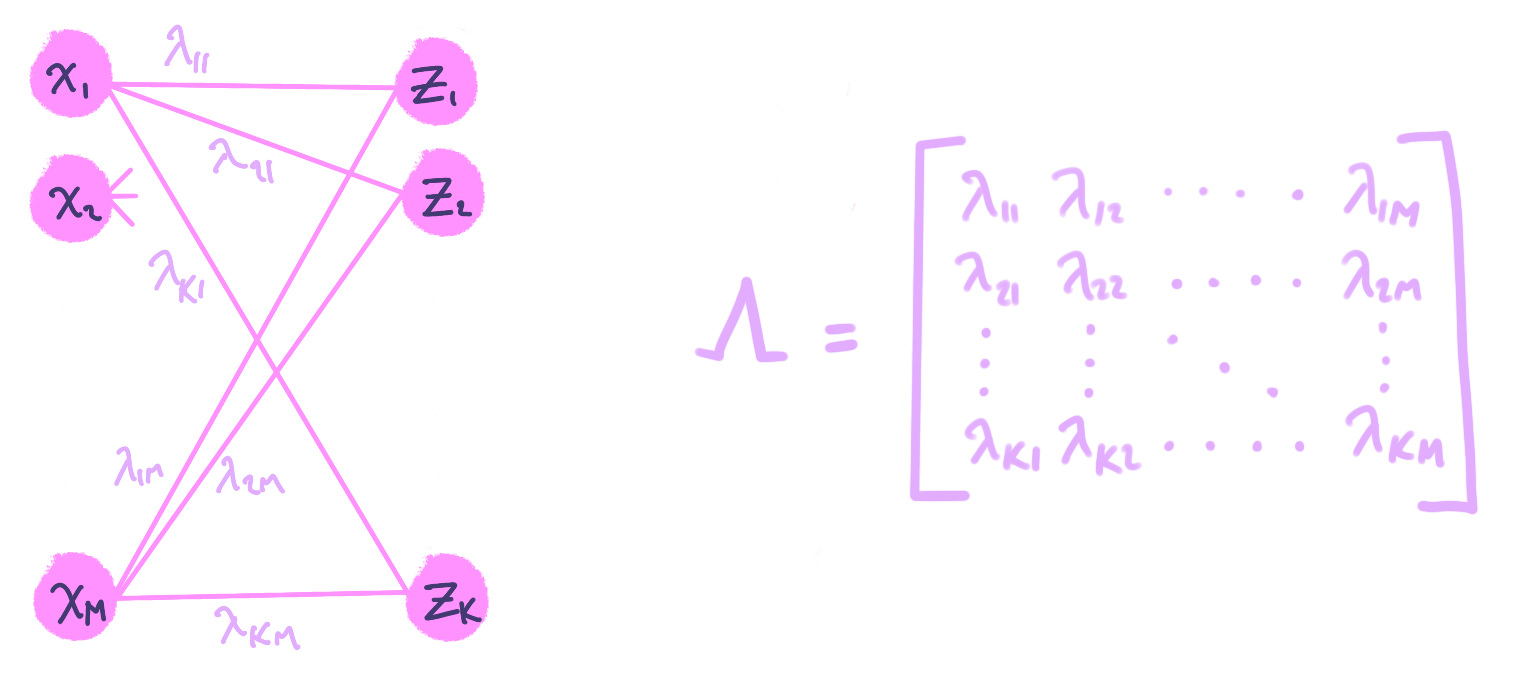 λ₁₁
χ₁ Z₁
λ₂₁
χ₂ Z₂
λ_K1
λ_1M λ_2M
χ_M Z_K
λ_KM
Λ = [
λ₁₁ λ₁₂ · · · · λ_1M
λ₂₁ λ₂₂ · · · · λ_2M
⋮ ⋮ ⋱ ⋮
λ_K1 λ_K2 · · · · λ_KM
]